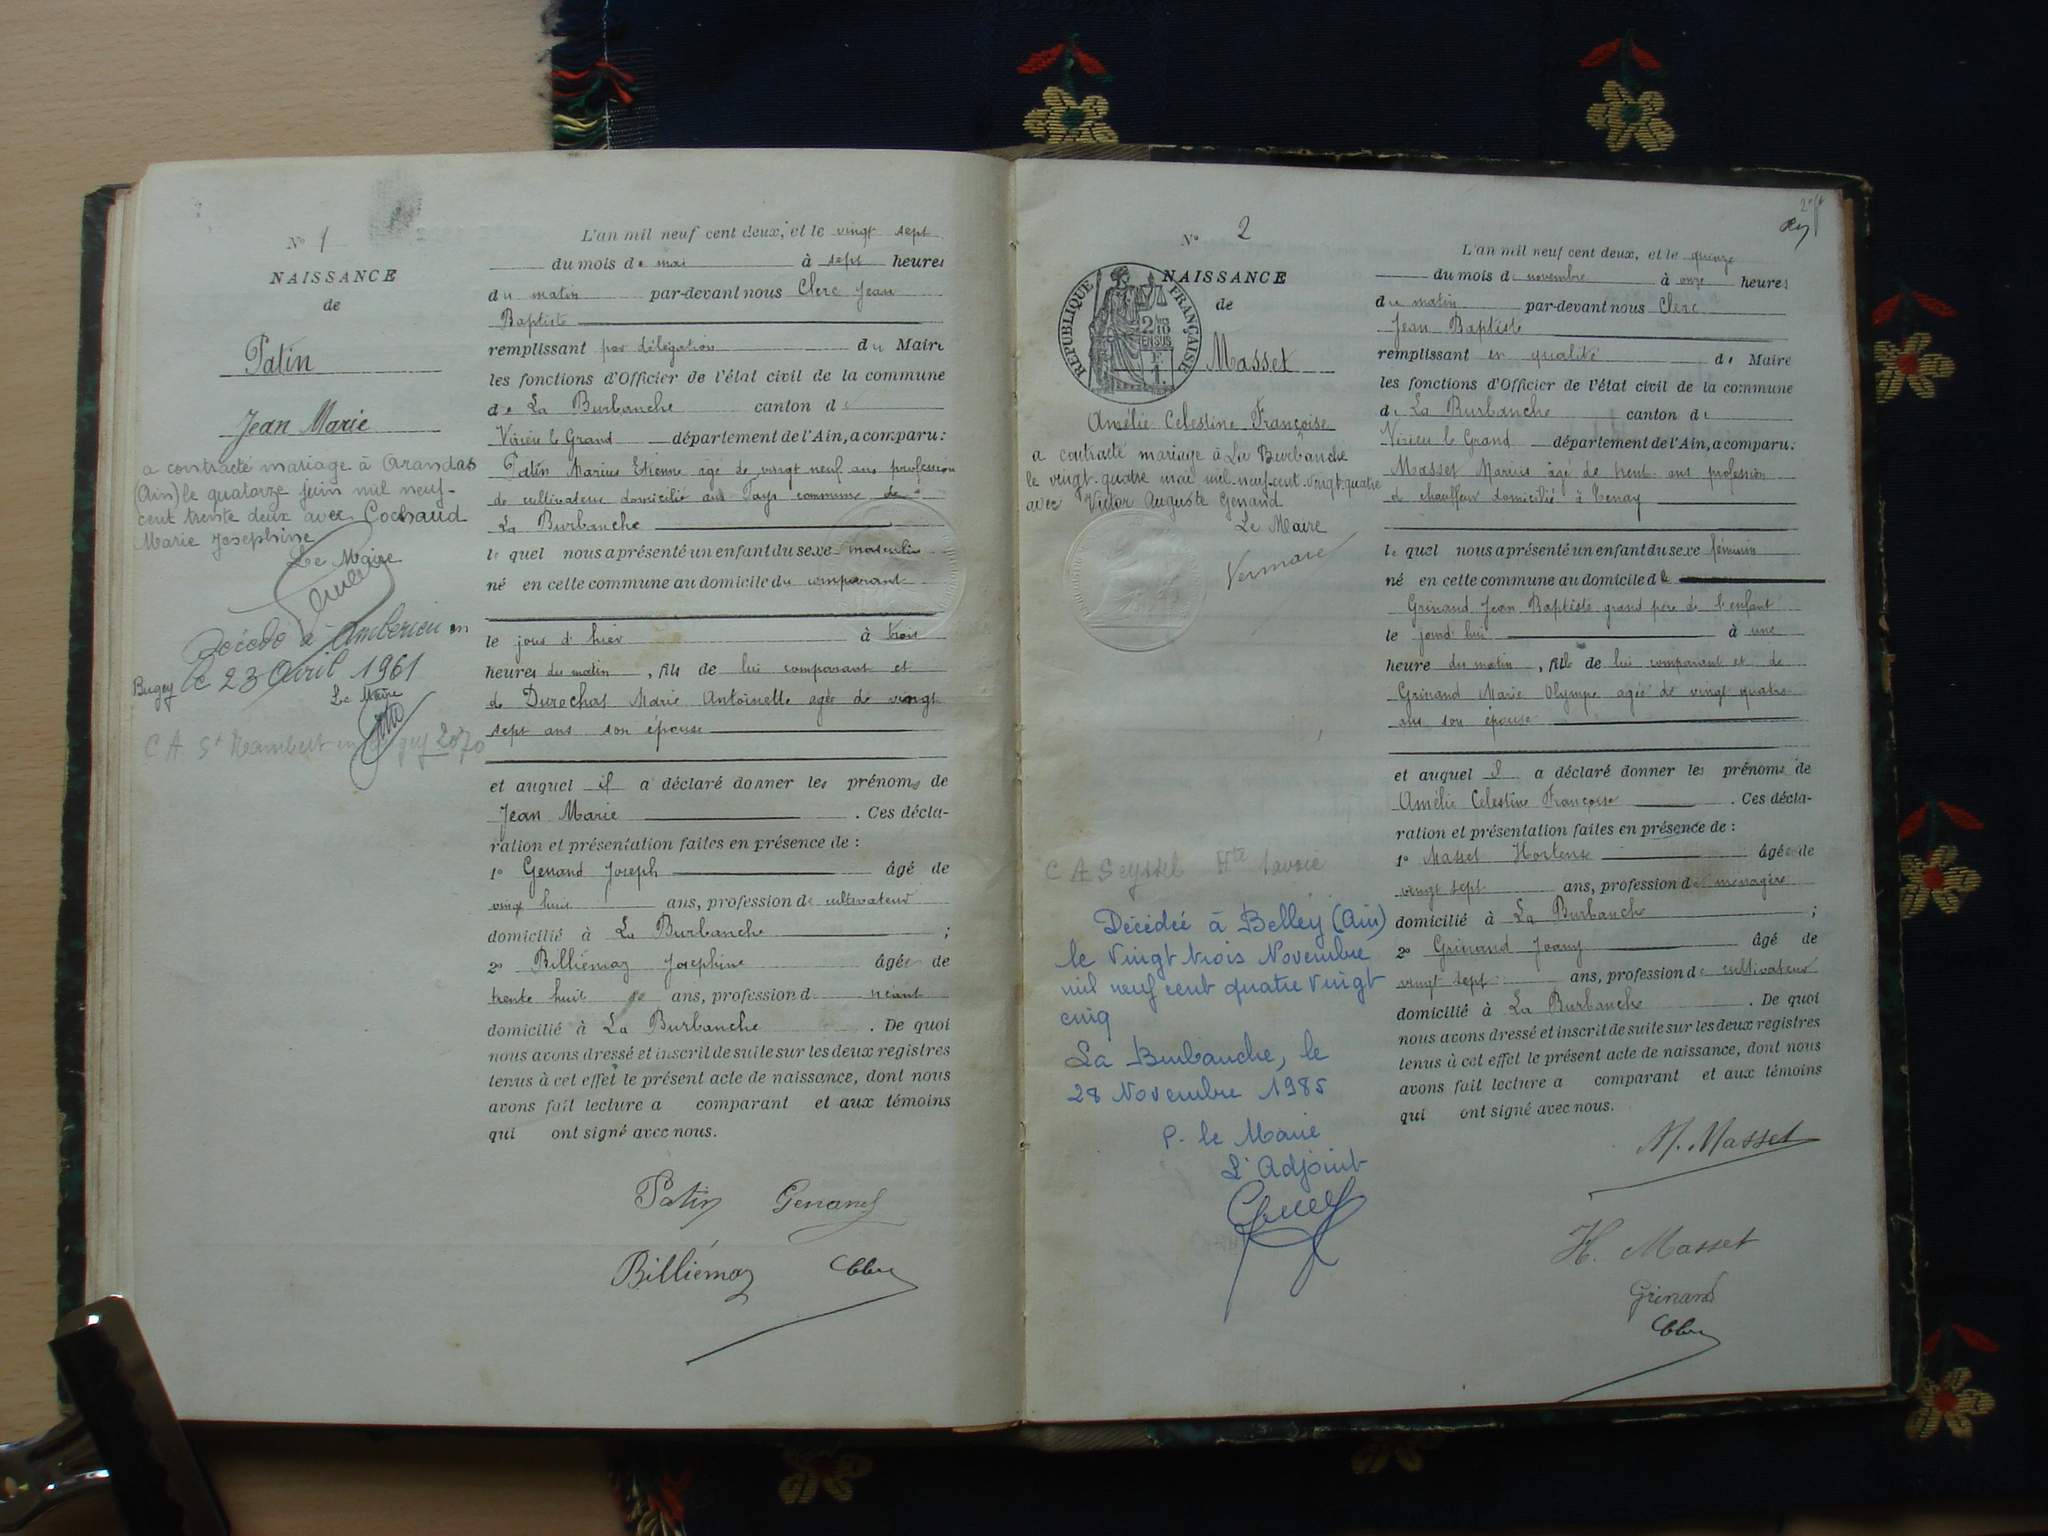 N° 1
NAISSANCE
de
Patin
Jean Marie
a contracté mariage à Arandas
(Ain) le quatorze juin mil neuf-
cent trente deux avec Cochaud
Marie Josephine
Le Maire
Décédé à Ambérieu en
Bugey le 23 Avril 1961
Le Maire
C A St Rambert en
L'an mil neuf cent deux, et le vingt sept
du mois de mai à sept heures
du matin par-devant nous Clerc Jean
Baptiste
remplissant par délégation du Maire
les fonctions d'Officier de l'état civil de la commune
de La Burbanche canton de
Virieu le Grand département de l'Ain, a comparu :
Patin Marius Etienne âgé de vingt neuf ans profession
de cultivateur domicilié aux Fays commune de
La Burbanche
lequel nous a présenté un enfant du sexe masculin
né en cette commune au domicile du comparant
le jour d'hier à trois
heures du matin, fils de lui comparant et
de Durochas Marie Antoinette agée de vingt
sept ans son épouse
et auquel il a déclaré donner les prénoms de
Jean Marie . Ces décla-
ration et présentation faites en présence de :
1° Genand Joseph âgé de
vingt huit ans, profession de cultivateur
domicilié à La Burbanche ;
2° Billiémaz Josephine âgée de
trente huit ans, profession d néant
domicilié à La Burbanche . De quoi
nous avons dressé et inscrit de suite sur les deux registres
tenus à cet effet le présent acte de naissance, dont nous
avons fait lecture a comparant et aux témoins
qui ont signé avec nous.
Patin Genand
Billiémaz
N° 2
NAISSANCE
de
RÉPUBLIQUE FRANÇAISE
Masset
Amélie Celestine Françoise
a contracté mariage à La Burbanche
le vingt-quatre mai mil-neuf-cent-vingt-quatre
avec Victor Auguste Genand
Le Maire
Vermare
C A Seyssel Hte Savoie
Décédée à Belley (Ain)
le Vingt trois Novembre
mil neuf cent quatre vingt
cinq
La Burbanche, le
28 Novembre 1985
P. le Maire
L'Adjoint
L'an mil neuf cent deux, et le quinze
du mois de novembre à onze heures
du matin par-devant nous Clerc
Jean Baptiste
remplissant en qualité de Maire
les fonctions d'Officier de l'état civil de la commune
de La Burbanche canton de
Virieu le Grand département de l'Ain, a comparu :
Masset Marius âgé de trente ans profession
de chauffeur domicilié à Tenay
lequel nous a présenté un enfant du sexe féminin
né en cette commune au domicile de
Grinand Jean Baptiste grand père de l'enfant
le jourd'hui à une
heure du matin, fille de lui comparant et de
Grinand Marie Olympe agée de vingt quatre
ans son épouse
et auquel il a déclaré donner les prénoms de
Amélie Celestine Françoise . Ces décla-
ration et présentation faites en présence de :
1° Masset Hortense âgée de
vingt sept ans, profession de ménagère
domicilié à La Burbanche ;
2° Grinand Joany âgé de
vingt sept ans, profession de cultivateur
domicilié à La Burbanche . De quoi
nous avons dressé et inscrit de suite sur les deux registres
tenus à cet effet le présent acte de naissance, dont nous
avons fait lecture a comparant et aux témoins
qui ont signé avec nous.
M. Masset
H. Masset
Grinand